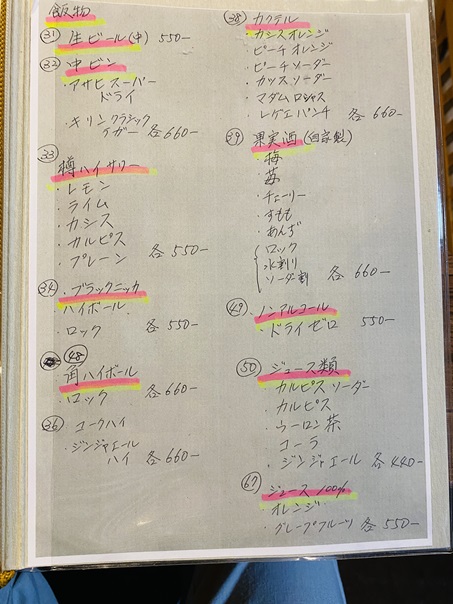 飯物
㉛ 生ビール(中) 550-
㉜ 中ビン
・アサヒスーパー
ドライ
・キリンクラシック
ラガー 各660-
㉝
樽ハイサワー
・レモン
・ライム
・カシス
・カルピス
・プレーン 各550-
㉞ ・ブラックニッカ
ハイボール
・ロック 各550-
㊽
角ハイボール
・ロック 各660-
㊱ コークハイ
・ジンジャエール
ハイ 各660-
㊳ カクテル
・カシスオレンジ
・ピーチオレンジ
・ピーチソーダー
・カシスソーダー
・マダムロシャス
・レゲエパンチ 各660-
㊴ 果実酒(自家製)
・梅
・苺
・チェーリー
・すもも
・あんず
ロック
水割り
ソーダ割 各660-
㊾ ノンアルコール
・ドライゼロ 550-
㊿ ジュース類
・カルピスソーダー
・カルピス
・ウーロン茶
・コーラ
・ジンジャエール 各440-
67 ジュース100%
・オレンジ
・グレープフルーツ 各550-